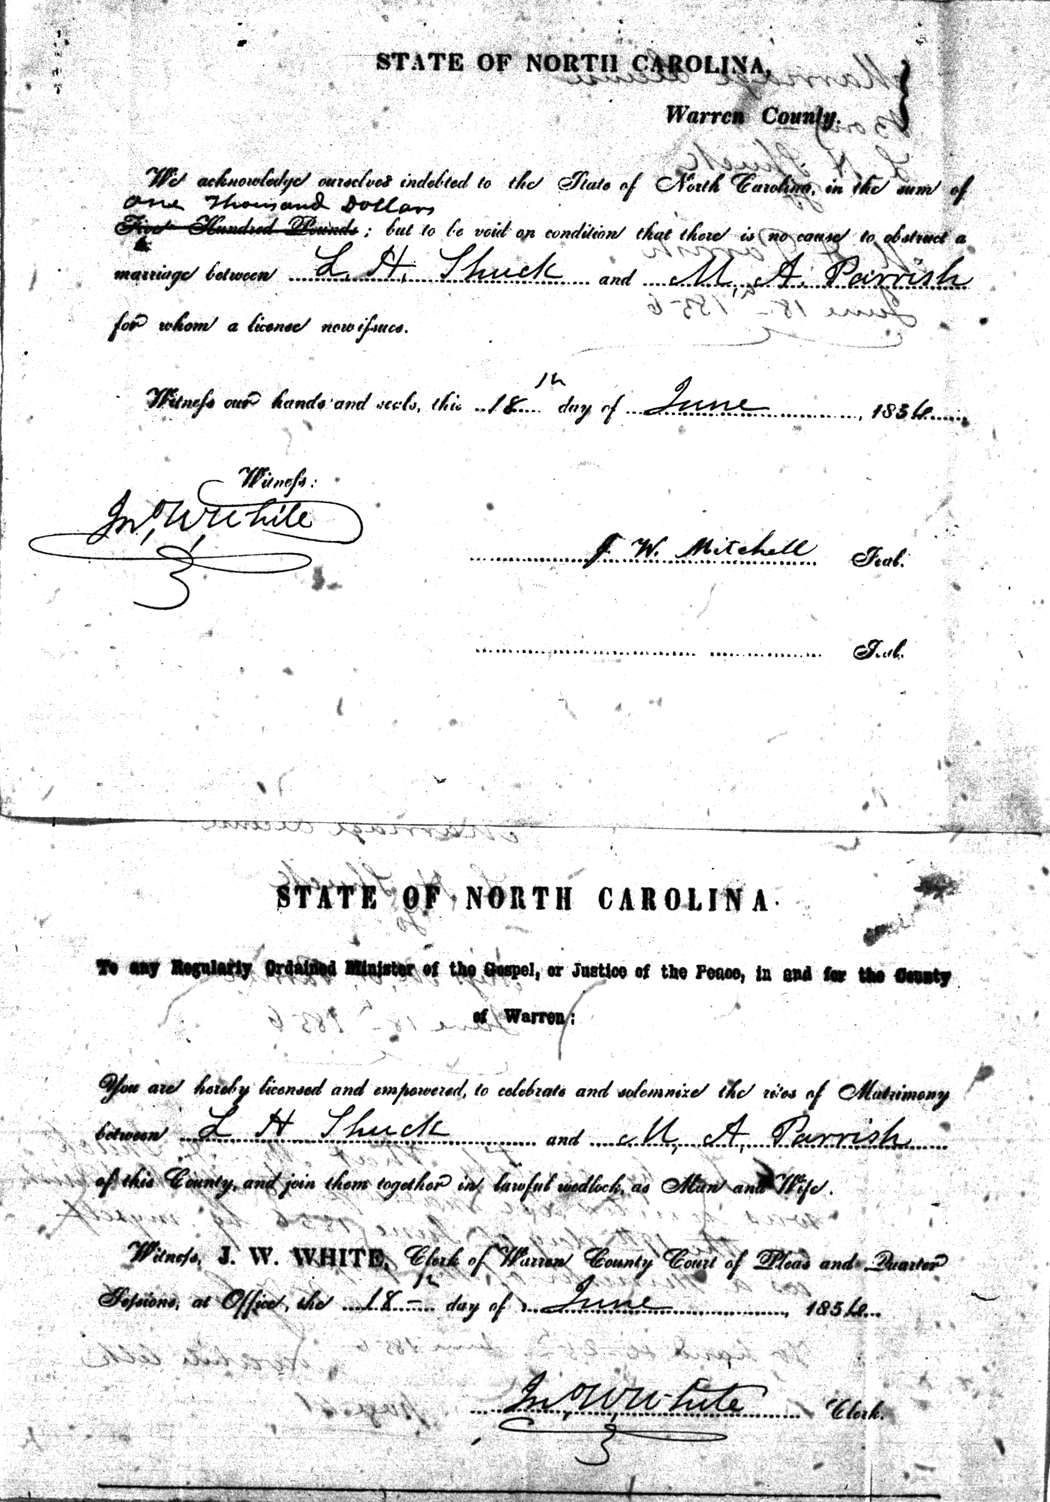 STATE OF NORTH CAROLINA,
Warren County.
We acknowledge ourselves indebted to the State of North Carolina, in the sum of
One Thousand Dollars
Five Hundred Pounds; but to be void on condition that there is no cause to obstruct a
marriage between L. H. Shuck and M. A. Parrish
for whom a license now issues.
Witness our hands and seals, this 18th day of June, 1856
Witness:
Jno. W. White
J. W. Mitchell Seal.
Seal.
STATE OF NORTH CAROLINA.
To any Regularly Ordained Minister of the Gospel, or Justice of the Peace, in and for the County
of Warren:
You are hereby licensed and empowered, to celebrate and solemnize the rites of Matrimony
between L H Shuck and M. A. Parrish
of this County, and join them together in lawful wedlock, as Man and Wife.
Witness, J. W. WHITE, Clerk of Warren County Court of Pleas and Quarter
Sessions, at Office, the 18th day of June, 1856.
Jno. W. White Clerk.